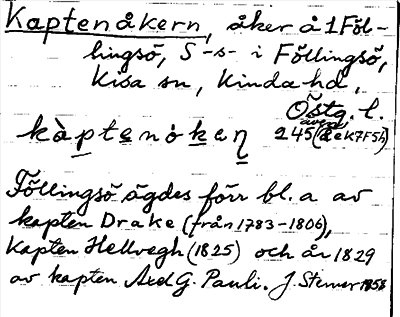 Kaptenåkern, åker å 1 Föl-
lingsö, S-s- i Föllingsö,
Kisa sn, Kinda hd,
Östg. l.
även
kàptenåkeɳ 245 (ÄeK7F5h)
Föllingsö ägdes förr bl. a av
kapten Drake (från 1783-1806),
Kapten Hellvegh (1825) och år 1829
av kapten Axel G. Pauli. J. Sterner 1958